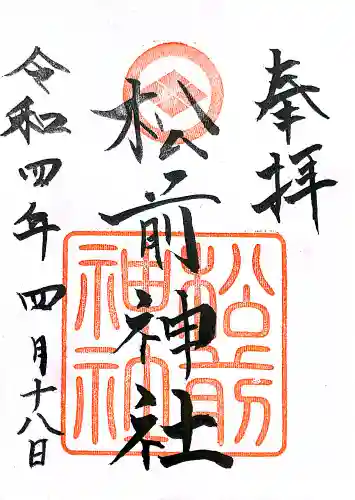 奉拝
松前神社
松前
神社
令和四年四月十八日